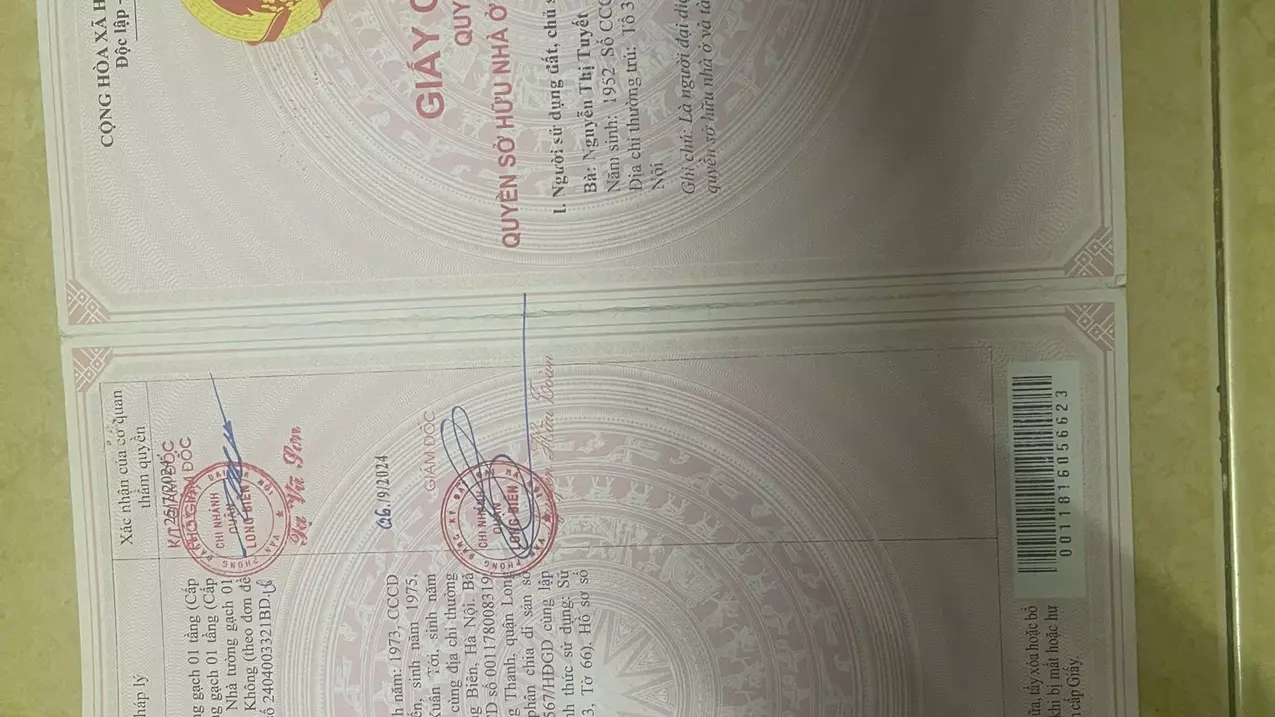 CỘNG HÒA XÃ H
Độc lập -
GIẤY C
QUY
QUYỀN SỞ HỮU NHÀ Ở
I. Người sử dụng đất, chủ s
Bà: Nguyễn Thị Tuyết
Năm sinh: 1952 Số CCC
Địa chỉ thường trú: Tổ 3
Nội
Ghi chú: Là người đại diệ
quyền sở hữu nhà ở và tà
háp lý
Xác nhận của cơ quan
thẩm quyền
ng gạch 01 tầng (Cấp
ng gạch 01 tầng (Cấp
Nhà tường gạch 01
Không (theo đơn đề
số 2404003321BD.
K/T GIÁM ĐỐC
26/7/2024
PHÓ GIÁM ĐỐC
VĂN PHÒNG ĐĂNG KÝ ĐẤT ĐAI HÀ NỘI
CHI NHÁNH
QUẬN
LONG BIÊN
Tạ Vũ Sơn
h năm: 1973, CCCD
ên, sinh năm 1975,
Xuân Tời, sinh năm
cùng địa chỉ thường
g Biên, Hà Nội. Bà
D số 001178008319
g Thanh, quận Long
phân chia di sản số
567/HĐGD cùng lập
nh thức sử dụng: Sử
3, Tờ 66), Hồ sơ số
06/9/2024
GIÁM ĐỐC
CHI NHÁNH
QUẬN
LONG BIÊN
ửa, tẩy xóa hoặc bổ
khi bị mất hoặc hư
n cấp Giấy.
001181605 6623